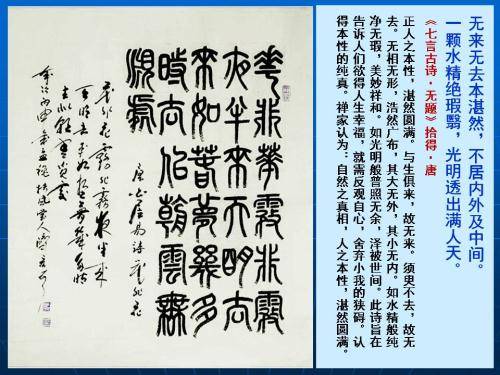 无来无去本湛然，不居内外及中间。
一颗水精绝瑕翳，光明透出满人天。
《七言古诗·无题》拾得·唐
正人之本性，湛然圆满。与生俱来，故无来。须臾不去，故无
去。无相无形，浩然广布，其大无外，其小无内。如水精般纯
净无瑕，美妙祥和。如光明般普照无余，泽被世间。此诗旨在
告诉人们欲得人生幸福，就需反观自心，舍弃小我的狭碍。认
得本性的纯真。禅家认为：自然之真相，人之本性，湛然圆满。
華非華霧非霧
夜半來天明去
來如春夢幾多
時去似朝雲無
覓處
唐白居易詩花非花